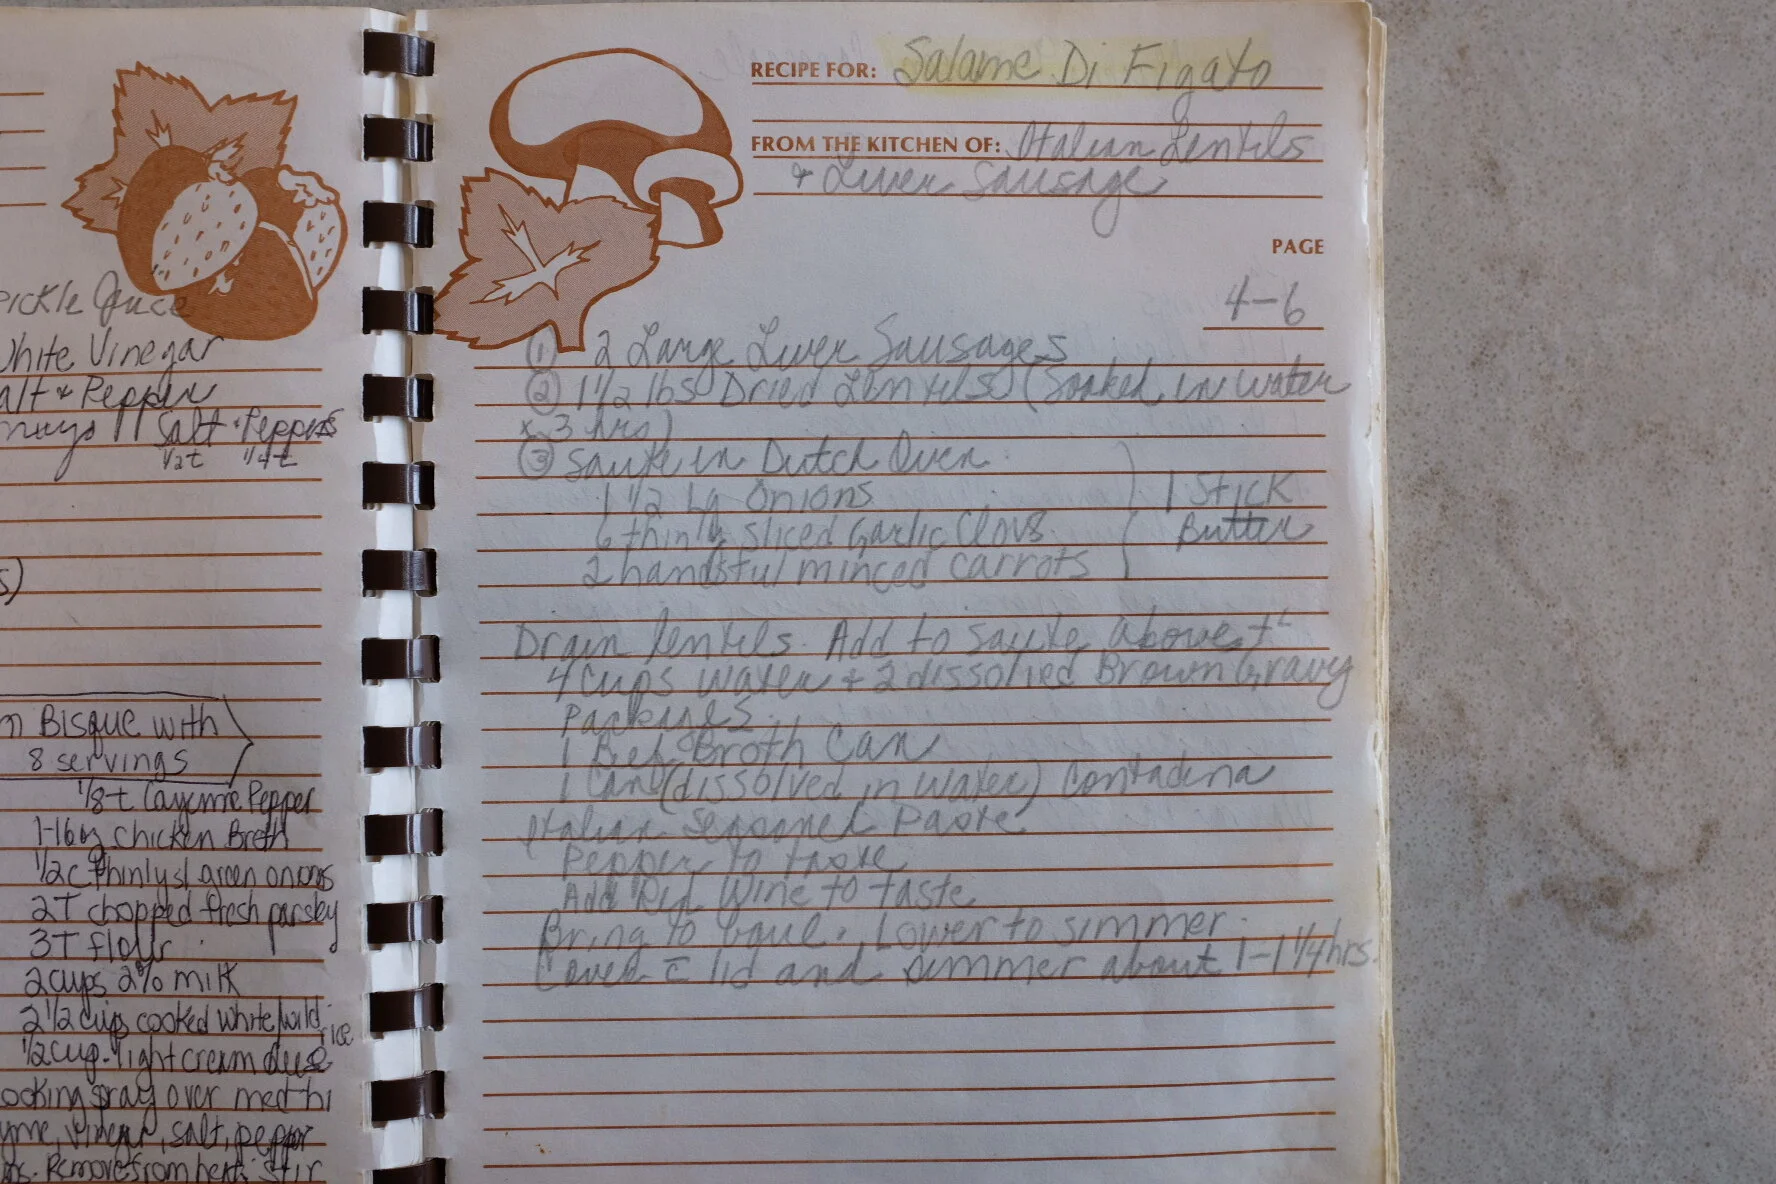 Pickle Juce
White Vinegar
Salt + Pepper
Salt + Peppers
1/2t 1/4t
s)
n Bisque with
8 servings
1/8-t Cayenne Pepper
1-16oz Chicken Broth
1/2c thinly sl green onions
2T chopped fresh parsley
3T flour
2 cups 2% milk
2 1/2 cups cooked white/wild rice
1/2 cup light cream cheese
ooking spray over med hi
yme, vinegar, salt, pepper
ns. Remove from heat. Stir
RECIPE FOR: Salame Di Figato
FROM THE KITCHEN OF: Italian Lentils
+ Liver Sausage
PAGE
4-6
① 2 Large Liver Sausages
② 1 1/2 lbs Dried Lentils (Soaked in water
x 3 hrs)
③ Saute in Dutch Oven
1 1/2 lg Onions
6 thinly sliced Garlic Clovs
2 handsful minced carrots
1 Stick
Butter
Drain lentils. Add to saute above +
4 Cups water + 2 dissolved Brown Gravy
Packages
1 Beef Broth Can
1 Can (dissolved in water) Contadina
Italian Seasoned Paste
Pepper to taste
Add Red Wine to taste
Bring to boil. Lower to simmer
Cover c̄ lid and simmer about 1-1 1/4 hrs.